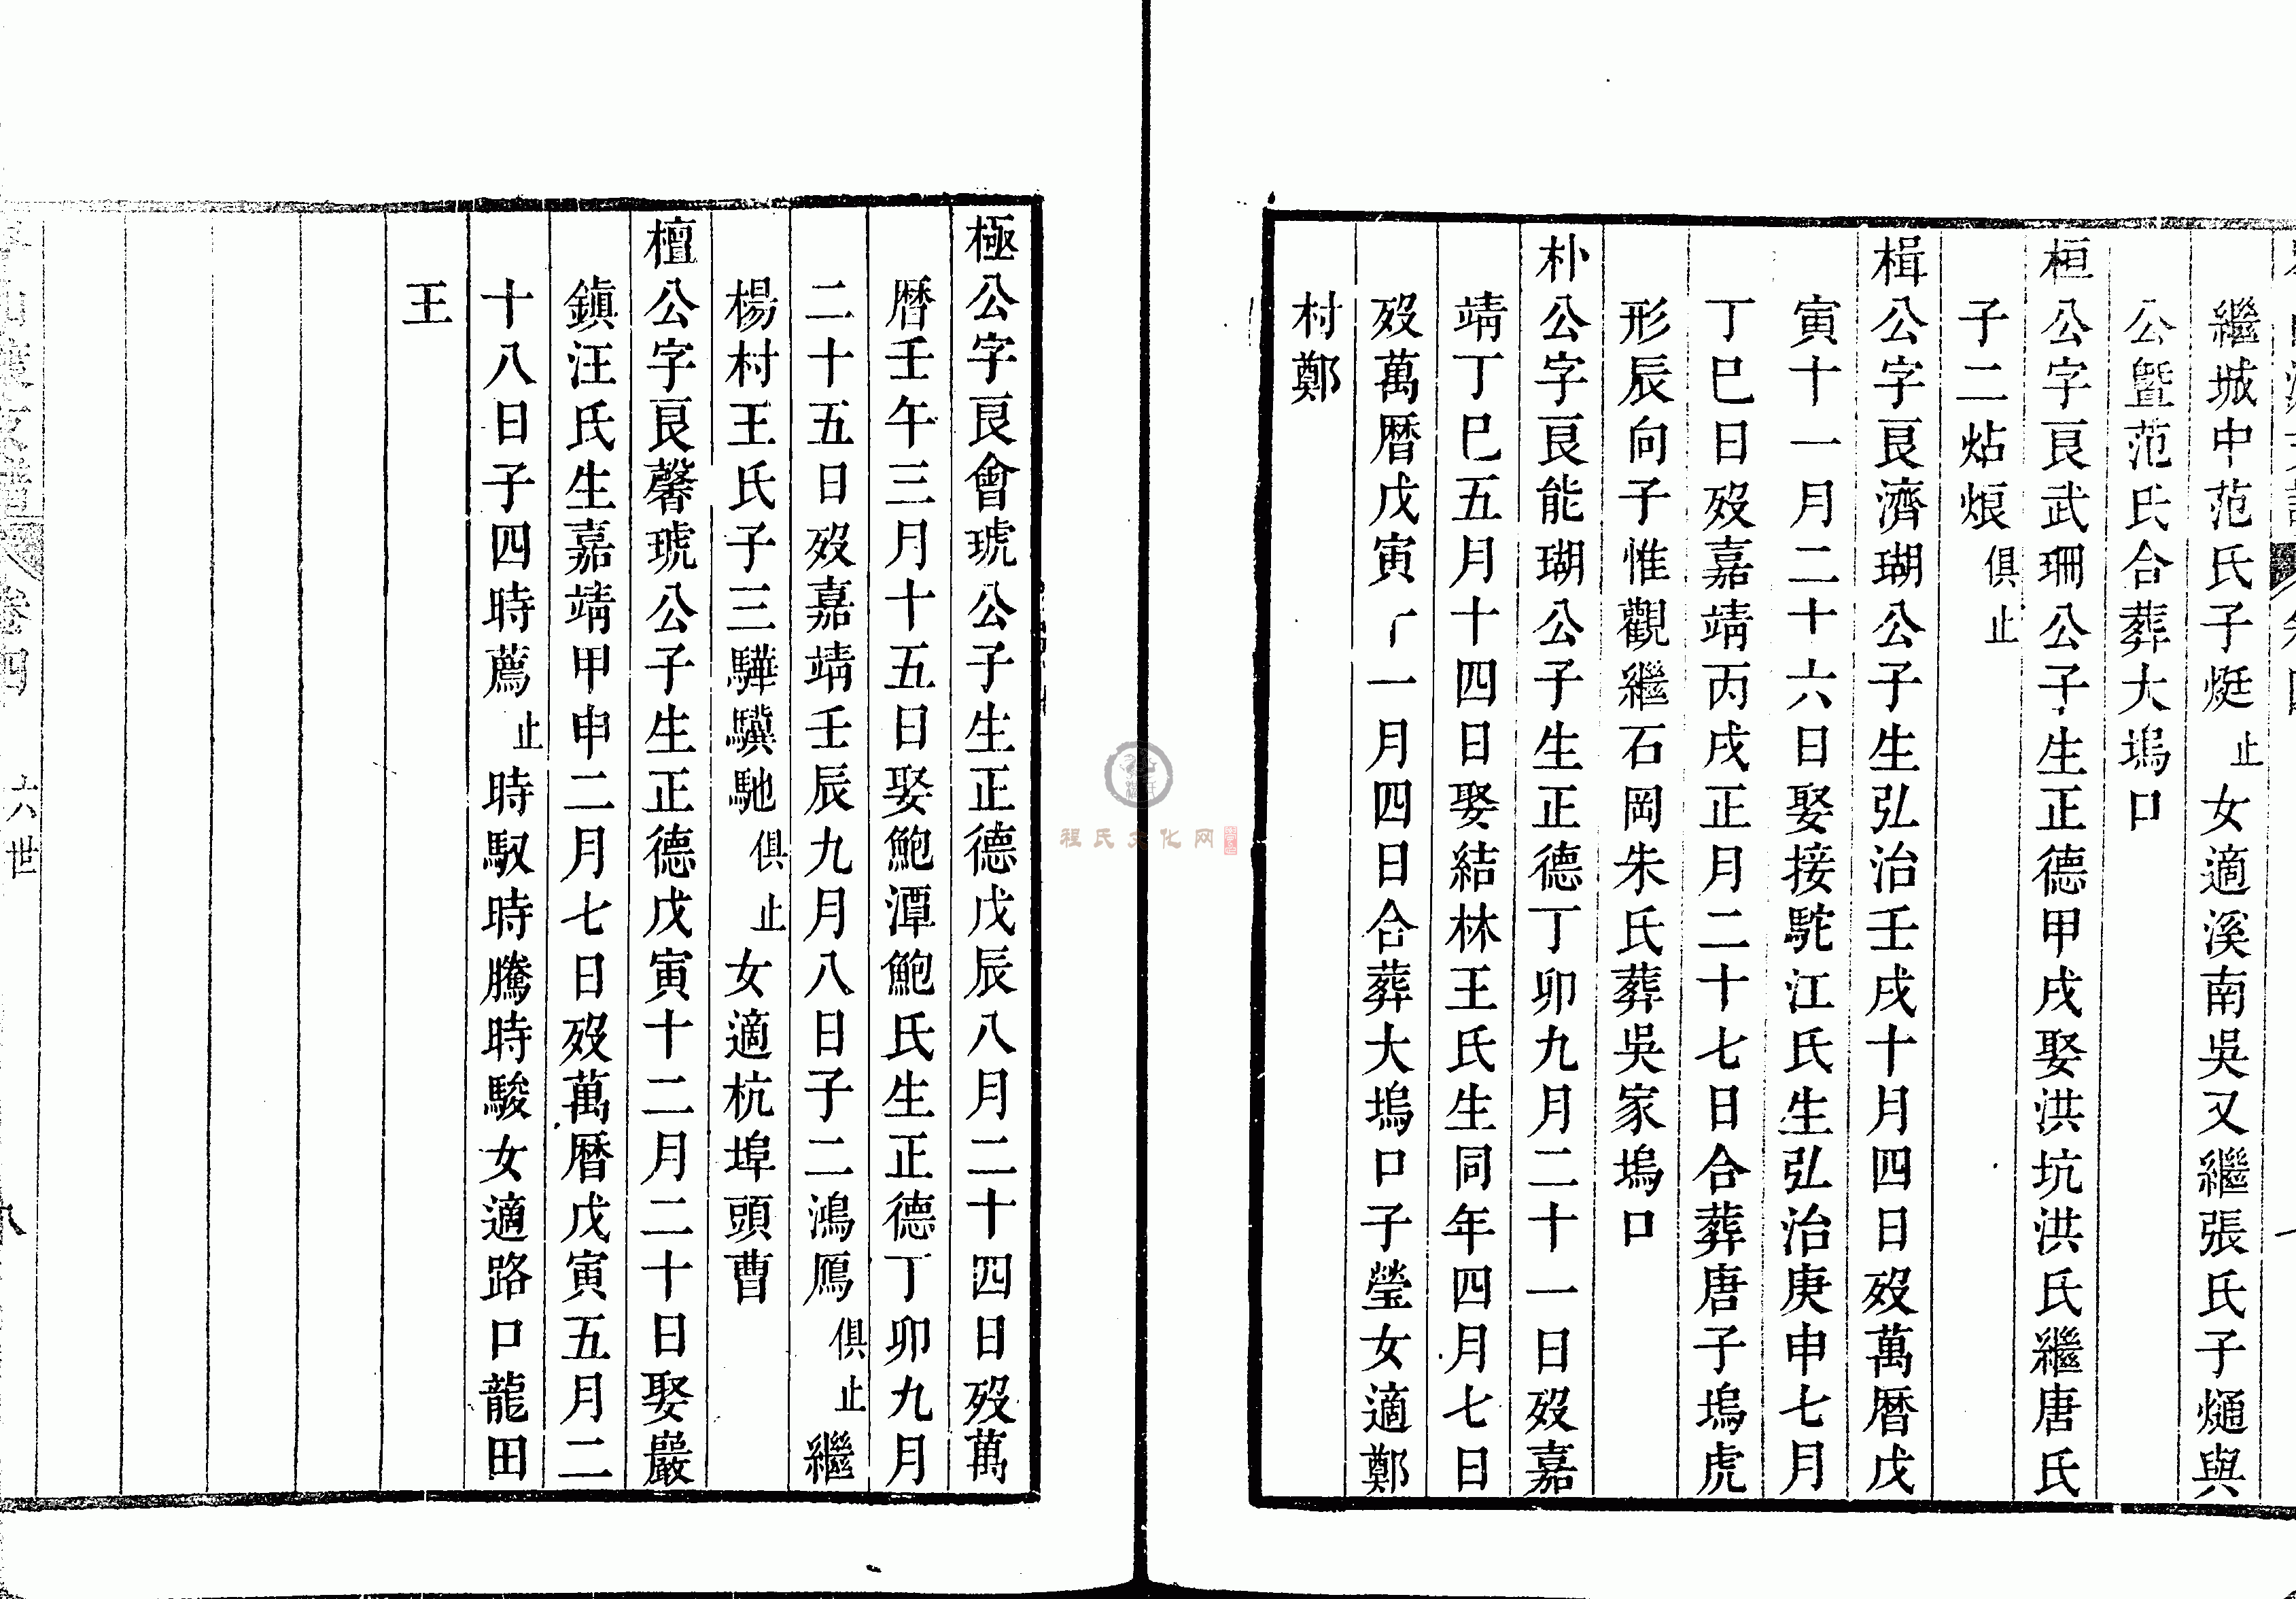 繼城中范氏子烶止女適溪南吳又繼張氏子熥與
公暨范氏合葬大塢口
桓公字良武珊公子生正德甲戌娶洪坑洪氏繼唐氏
子二炶烺俱止
楫公字良濟瑚公子生弘治壬戌十月四日歿萬曆戊
寅十一月二十六日娶接駝江氏生弘治庚申七月
丁巳日歿嘉靖丙戌正月二十七日合葬唐子塢虎
形辰向子惟觀繼石岡朱氏葬吳家塢口
朴公字良能瑚公子生正德丁卯九月二十一日歿嘉
靖丁巳五月十四日娶結林王氏生同年四月七日
歿萬曆戊寅一月四日合葬大塢口子瑩女適鄭
村鄭
極公字良會琥公子生正德戊辰八月二十四日歿萬
曆壬午三月十五日娶鮑潭鮑氏生正德丁卯九月
二十五日歿嘉靖壬辰九月八日子二鴻鴈俱止繼
楊村王氏子三驊驥馳俱止女適杭埠頭曹
檀公字良馨琥公子生正德戊寅十二月二十日娶巖
鎮汪氏生嘉靖甲申二月七日歿萬曆戊寅五月二
十八日子四時薦止時馭時騰時駿女適路口龍田
王
卷四 六世 八
程氏文化网